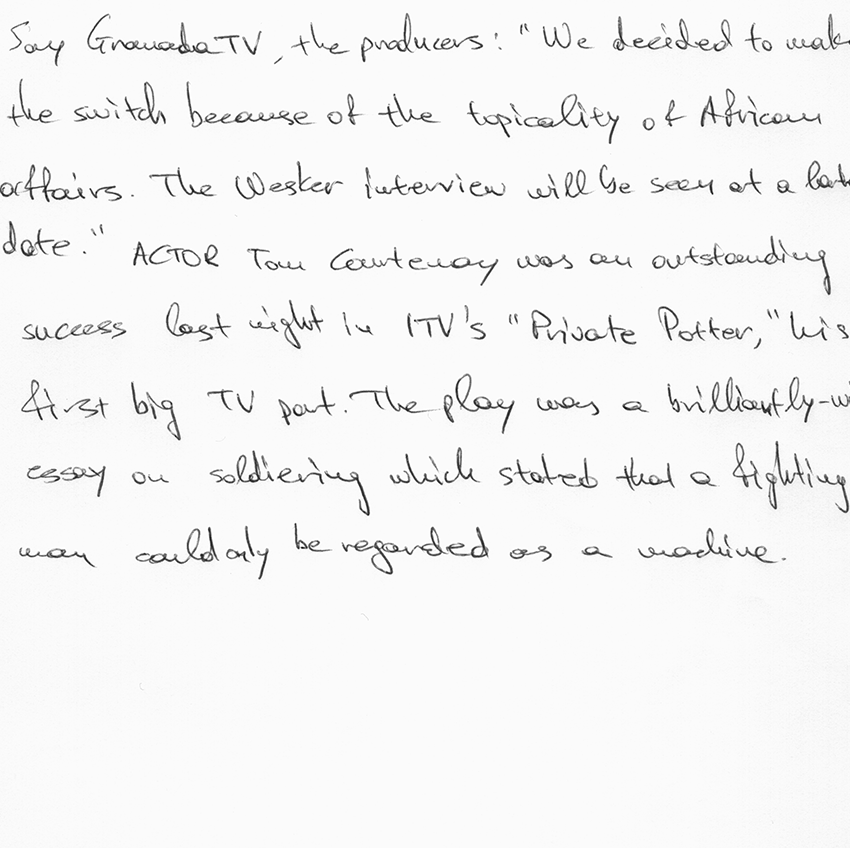 Say Granada TV, the producers: "We decided to make
the switch because of the topicality of African
affairs. The Wesker interview will be seen at a late
date." ACTOR Tom Courtenay was an outstanding
success last night in ITV's "Private Potter," his
first big TV part. The play was a brilliantly-w
essay on soldiering which stated that a fighting
man could only be regarded as a machine.